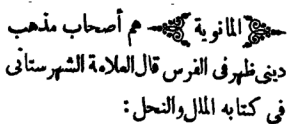 المانوية هم أصحاب مذهب
دينى ظهر فى الفرس قال العلامة الشهرستانى
فى كتابه الملل والنحل :